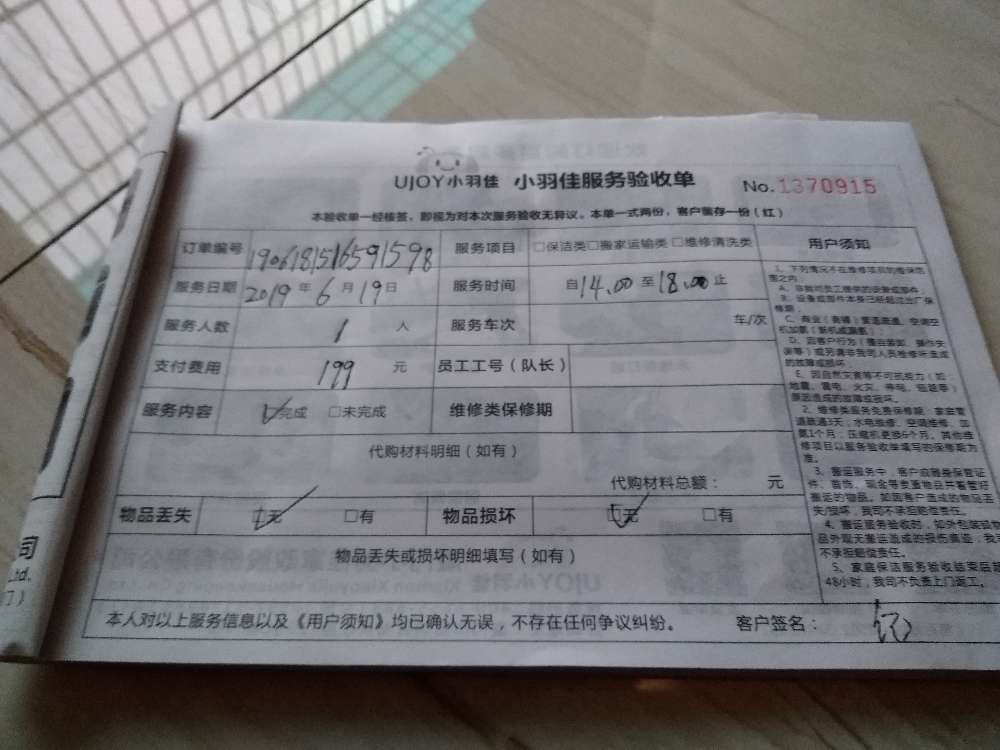 UJOY小羽佳 小羽佳服务验收单 No.1370915
本验收单一经核签，即视为对本次服务验收无异议。本单一式两份，客户留存一份（红）
订单编号 1906181516591598 服务项目 □保洁类□搬家运输类□维修清洗类
服务日期 2019年6月19日 服务时间 自14.00至18.00止
服务人数 1人 服务车次 车/次
支付费用 199元 员工工号（队长）
服务内容 □完成 □未完成 维修类保修期
代购材料明细（如有）
代购材料总额： 元
物品丢失 □无 □有 物品损坏 □无 □有
物品丢失或损坏明细填写（如有）
本人对以上服务信息以及《用户须知》均已确认无误，不存在任何争议纠纷。 客户签名：
用户须知
1、下列情况不在维修项目的维保范
围之内：
A、非我司员工提供的设备或部件。
B、设备或部件本身已经超过出厂保
修期；
E、因自然灾害等不可抗力（如：
地震、雷电、火灾、停电、
2、维修类服务免费保修期：家庭管
道疏通3天，水电维修、空调维修、加
氟1个月，压缩机更换6个月。其他维
修项目以服务验收单填写的保修期为
准。
3、搬运服务中，客户应随身保管证
件、首饰、现金等贵重物品并看管好
搬运的物品。如因客户造成的物品丢
失/损坏，我司不承担赔偿责任。
4、搬运服务验收时，如外包装或物
品外观无搬运造成的损伤痕迹，我司
不承担赔偿责任。
5、家庭保洁服务验收结束后超
48小时，我司不负责上门返工。
司
Ltd.